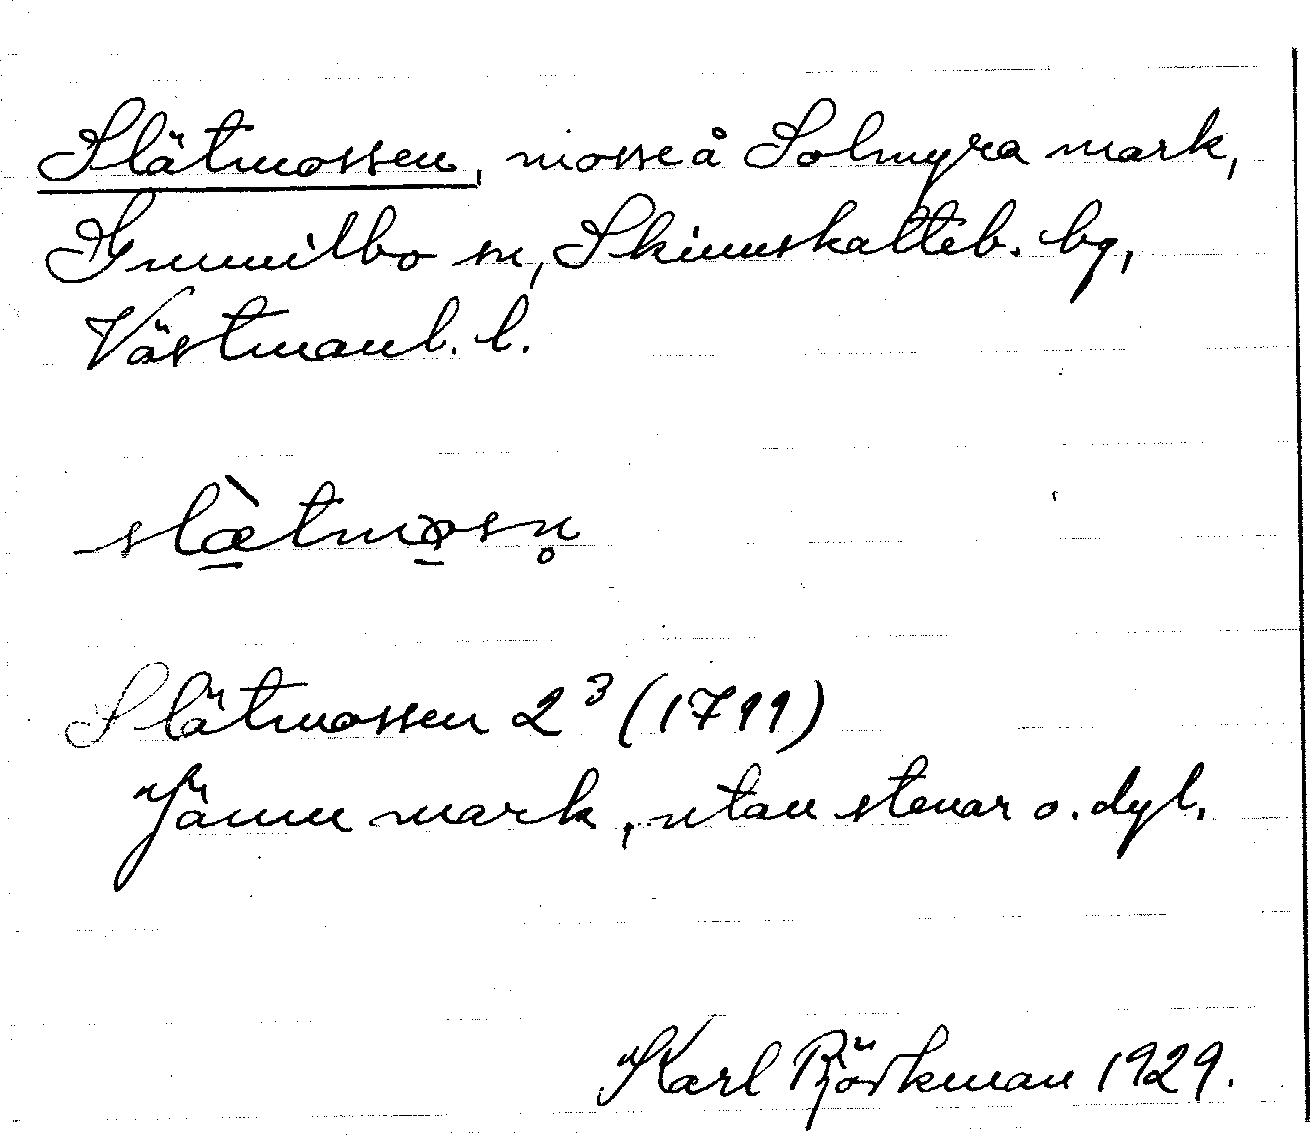 Slätmossen, mosse å Solmyra mark,
Gunnilbo sn, Skinnskatteb. bg,
Västmanl. l.
slæ̀tmosn̥
Slätmossen 2³ (1799)
Jämn mark, utan stenar o. dyl.
Karl Björkman 1929.